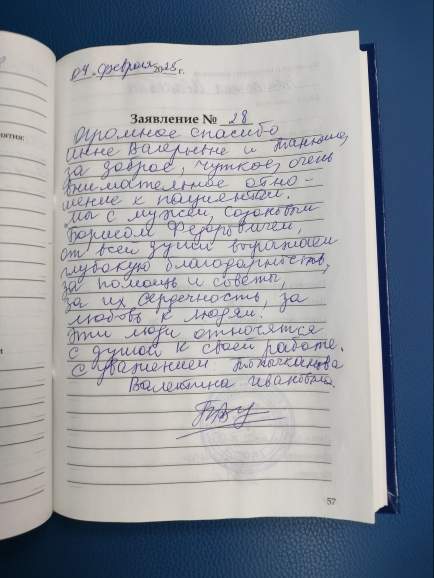 04 февраля 2025 г.
Заявление № 28
Огромное спасибо
Инне Валерьевне и Танюше,
за доброе, чуткое, очень
внимательное отно-
шение к пациентам.
Мы с мужем,
Борисом Федоровичем,
от всей души выражаем
глубокую благодарность,
за помощь и советы,
за их сердечность, за
любовь к людям!
Эти люди относятся
с душой к своей работе.
С уважением
Валентина Ивановна.
57